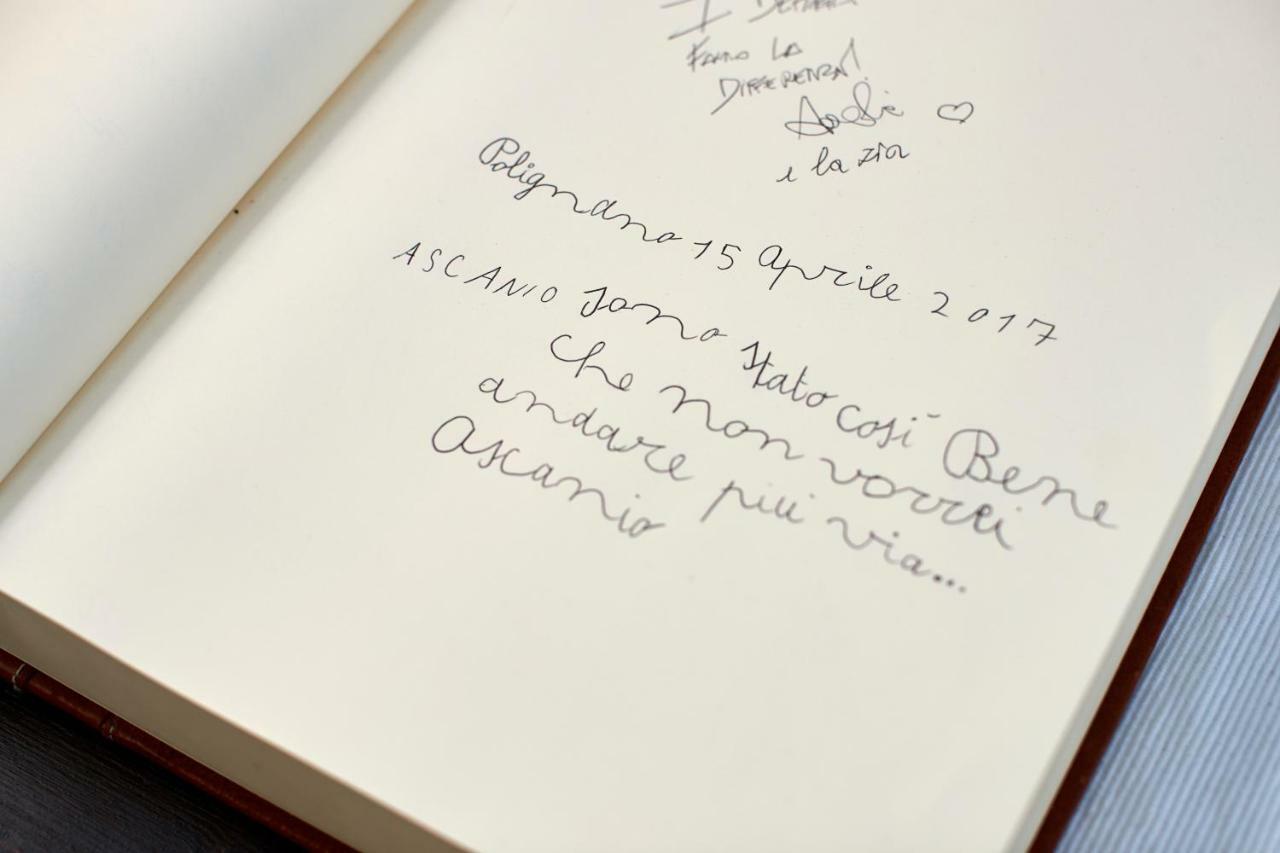 I DETTAGLI
FANNO LA
DIFFERENZA!
e la zia
Polignano 15 Aprile 2017
ASCANIO Sono stato così Bene
che non vorrei
andare più via...
Ascanio